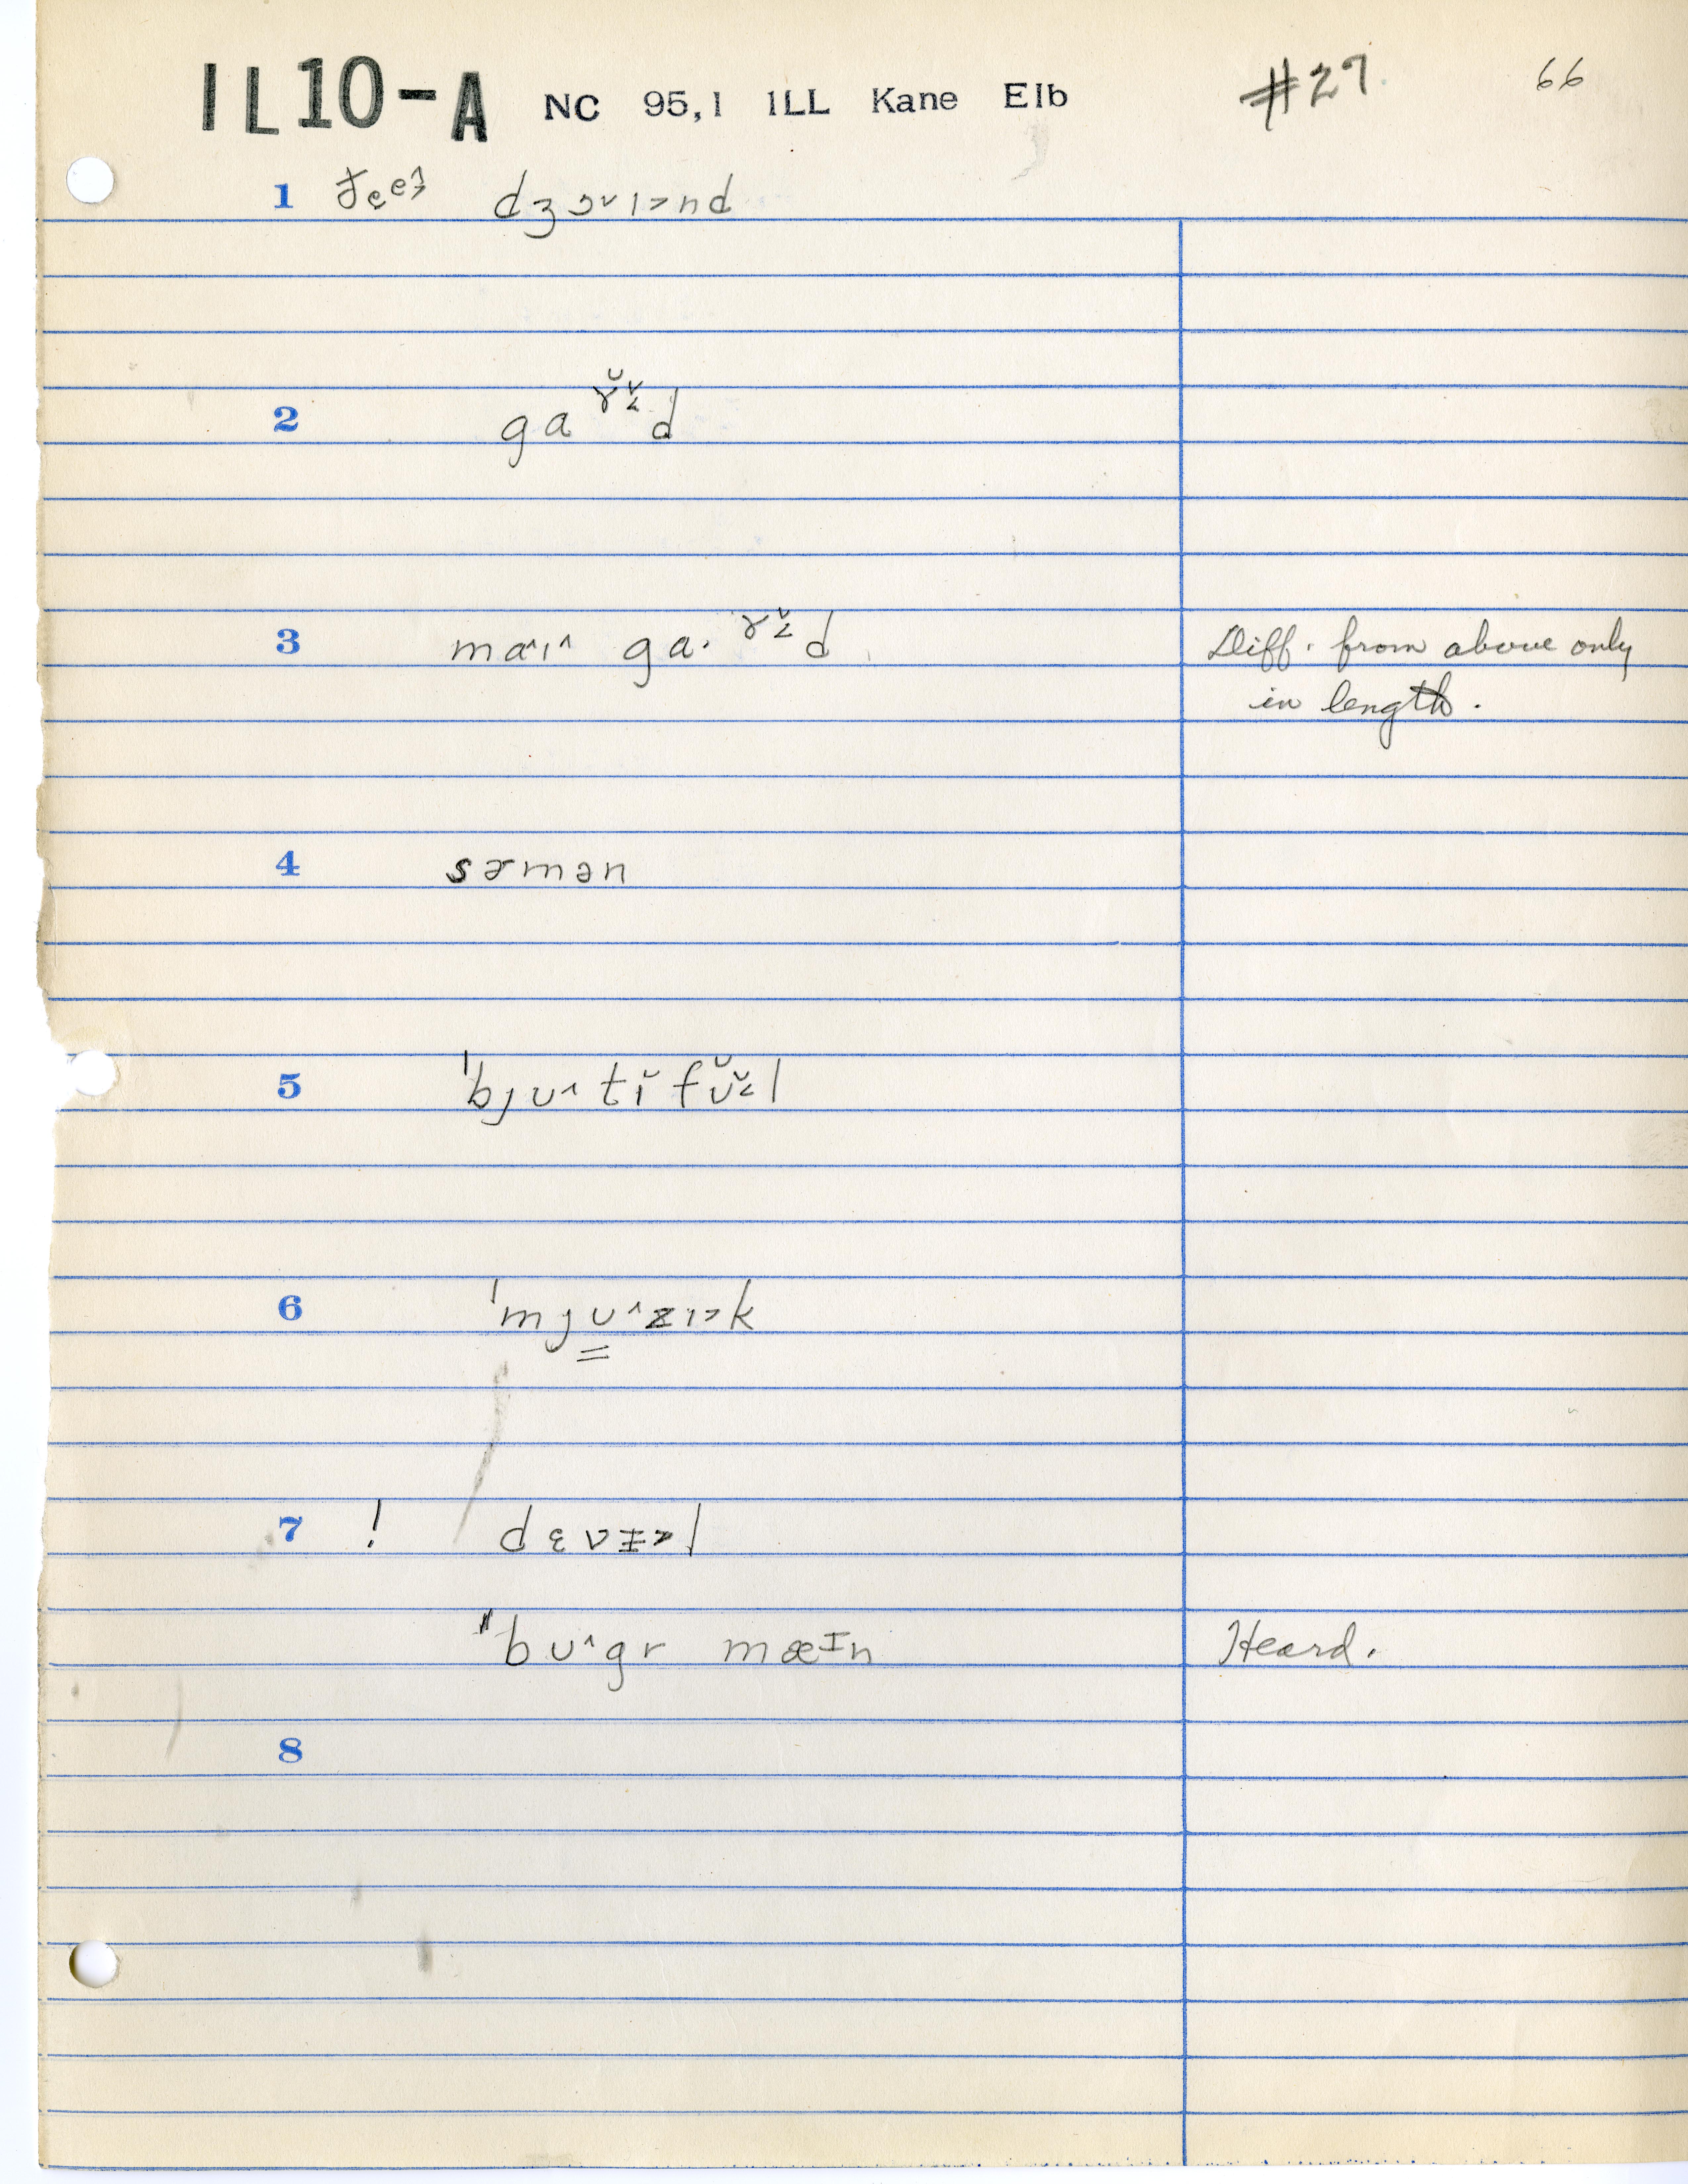 IL10-A NC 95,1 ILL Kane Elb #27 66
1 dʒɔ˅ɪ˃nd
2 ga ɤ̆˅˂ d
3 ma˄ɪ˄ ga· ɤ˅˂ d Diff. from above only
in length.
4 sɚmən
5 ˈbjʊ˄tɪ̆fʊ̆˅˂l
6 ˈmjʊ˄zɪ˃k
7 ! dɛvɪ˃l
"bʊ˄gr mæɪn Heard.
8